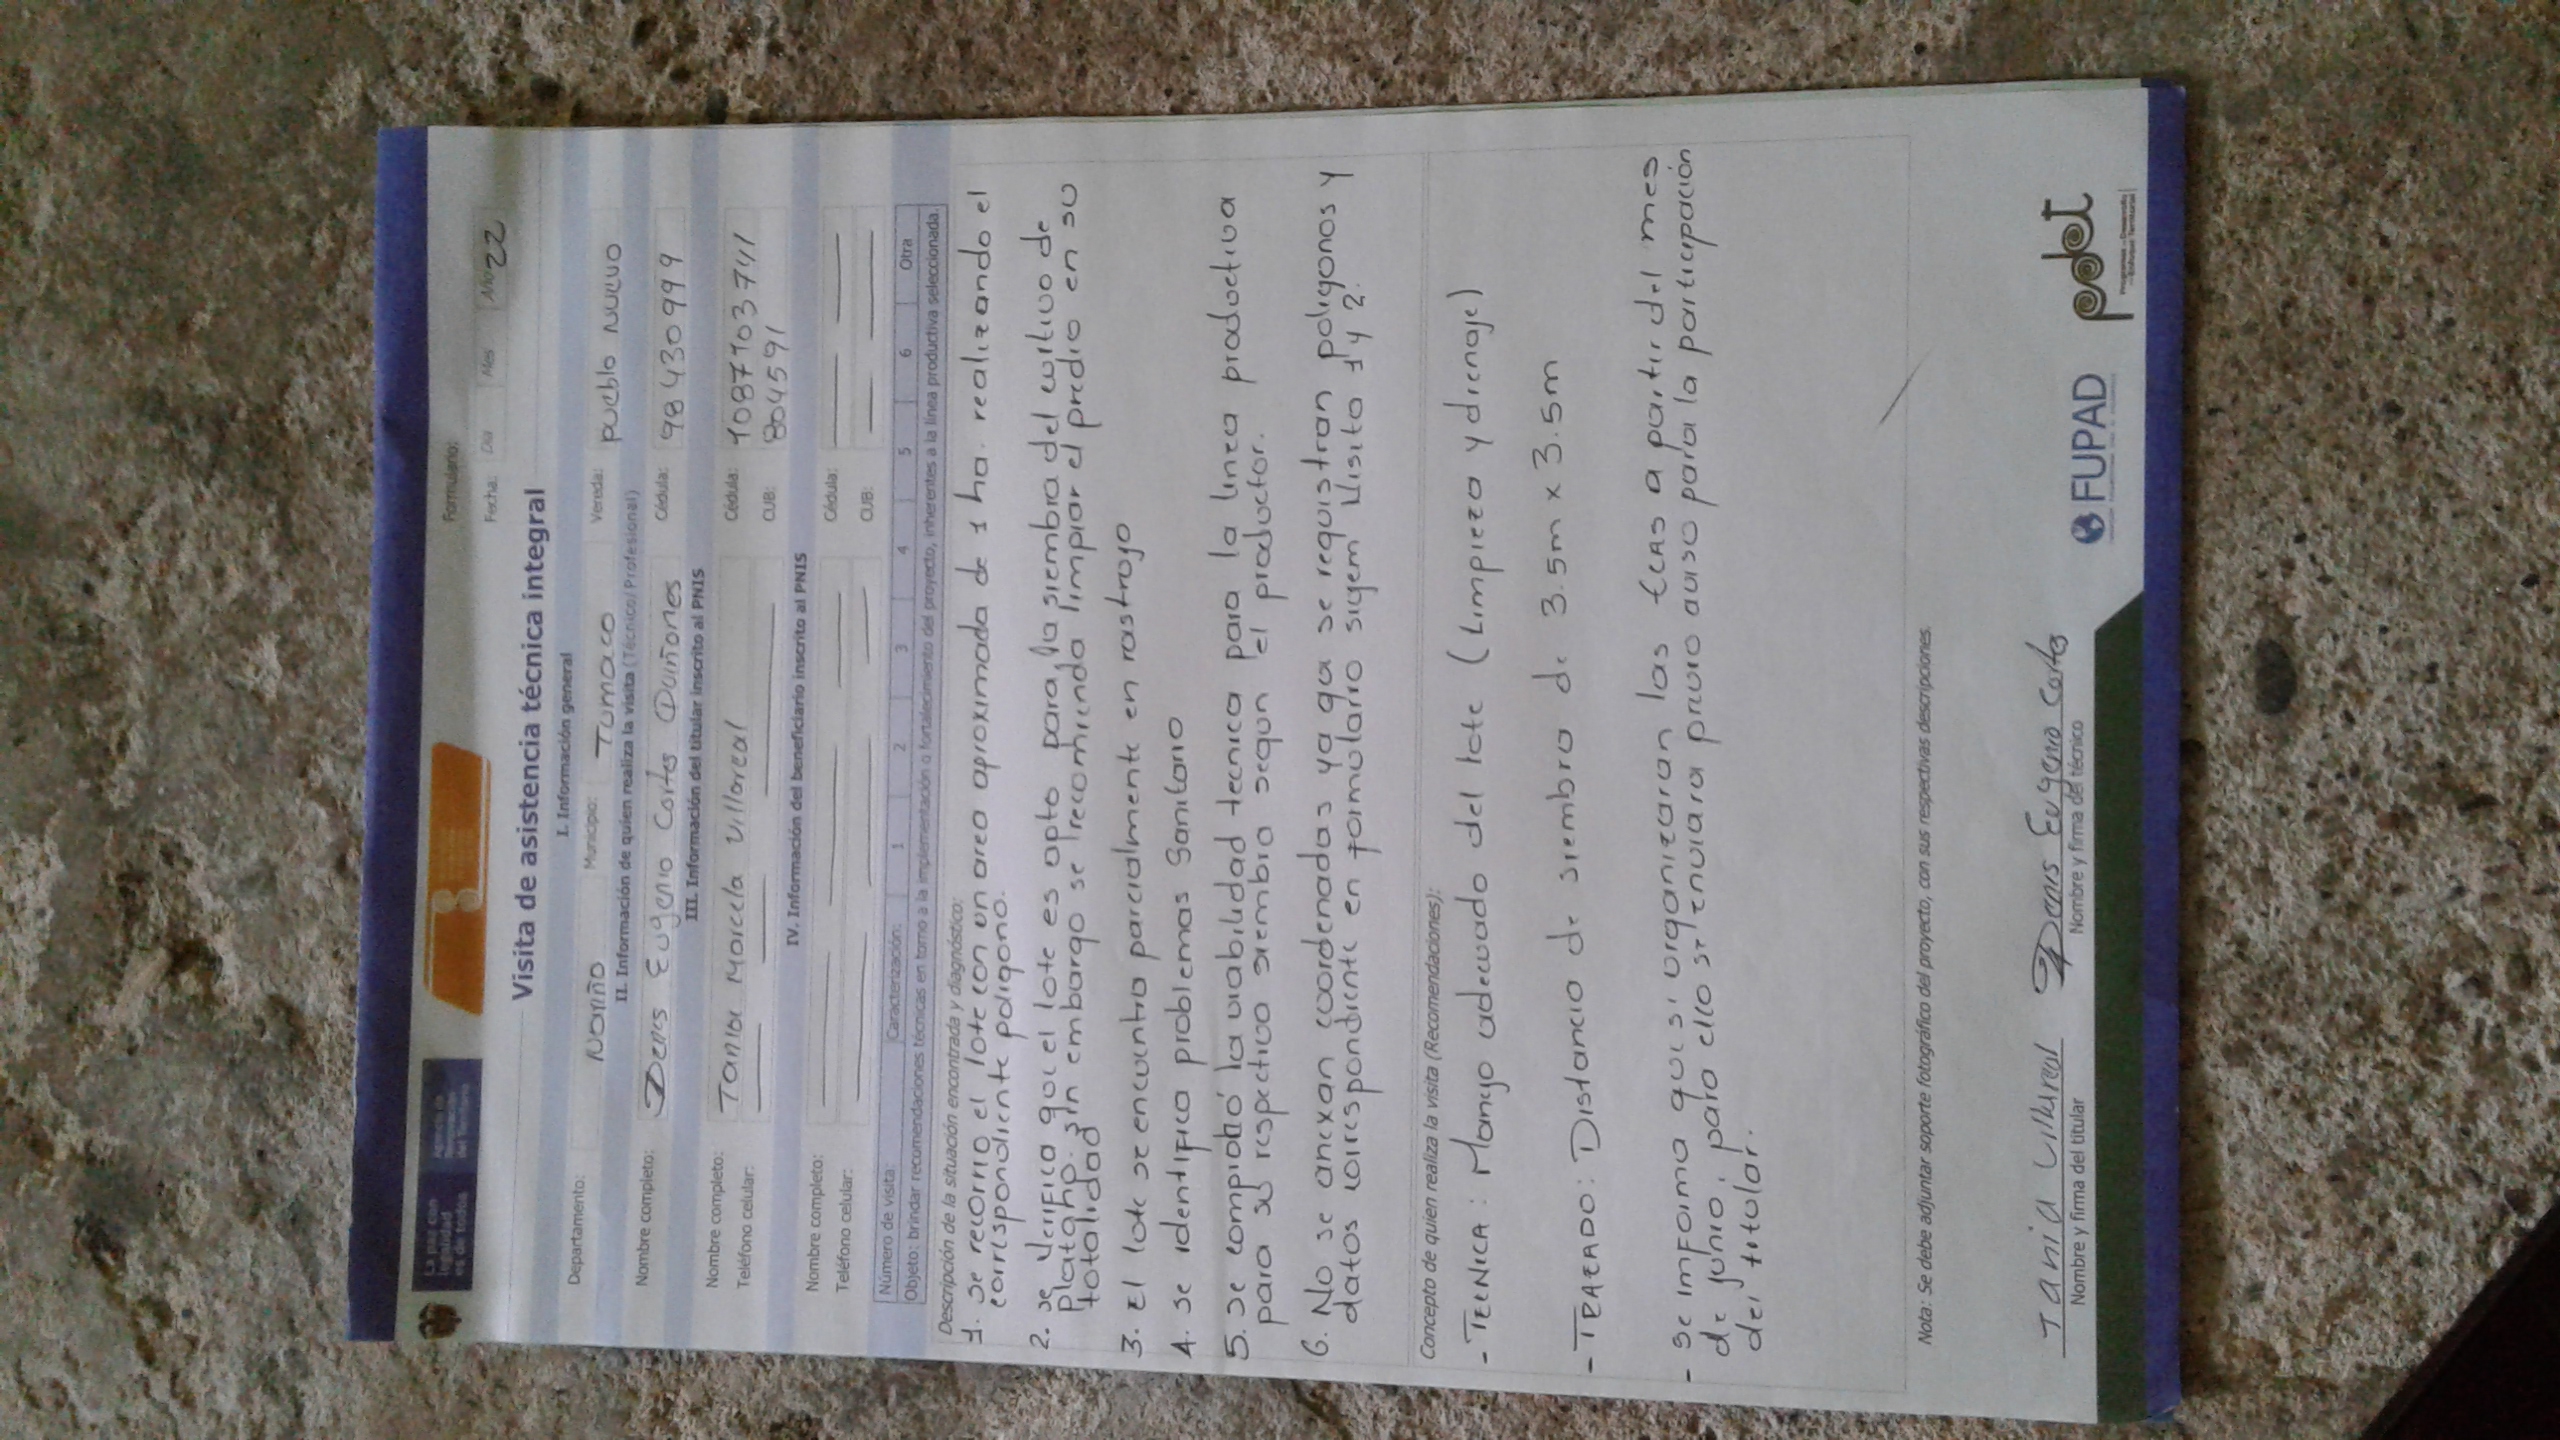 La paz con legalidad es de todos
Agencia de Renovación del Territorio
Formulario:
Fecha: Día Mes Año 22
Visita de asistencia técnica integral
I. Información general
Departamento: Nariño Municipio: Tumaco Vereda: pueblo nuevo
II. Información de quien realiza la visita (Técnico/Profesional)
Nombre completo: Denis Eugenio Cortes Quiñones Cédula: 98430999
III. Información del titular inscrito al PNIS
Nombre completo: Tania Marcela Villoreal Cédula: 1087103711
Teléfono celular: CUB: 8045591
IV. Información del beneficiario inscrito al PNIS
Nombre completo: Cédula:
Teléfono celular: CUB:
Número de visita: Caracterización: 1 2 3 4 5 6 Otra
Objeto: brindar recomendaciones técnicas en torno a la implementación o fortalecimiento del proyecto, inherentes a la línea productiva seleccionada.
Descripción de la situación encontrada y diagnóstico:
1. se recorrio el lote con un area aproximada de 1 ha. realizando el
correspondiente poligono.
2. se verifica que el lote es apto para la siembra del cultivo de
platano. sin embargo se recomienda limpiar el predio en su
totalidad
3. El lote se encuentra parcialmente en rastrojo
4. se identifica problemas sanitario
5. se comprobó la viabilidad tecnica para la linea productiva
para su respectivo siembra segun el productor.
6. No se anexan coordenadas ya que se requistran poligonos y
datos correspondiente en formulario sigem visita 1 y 2.
Concepto de quien realiza la visita (Recomendaciones):
- TECNICA: Manejo adecuado del lote (Limpieza y drenaje)
- TRAZADO: Distancia de siembra de 3.5m x 3.5m
- se informa que si organizaran las ECAS a partir del mes
de junio, para ello se enviara previo aviso para la participación
del titular.
Nota: Se debe adjuntar soporte fotográfico del proyecto, con sus respectivas descripciones.
Tania Villareal Denis Eugenio Cortes
Nombre y firma del titular Nombre y firma del técnico
FUPAD
pdet
Programas de Desarrollo con Enfoque Territorial